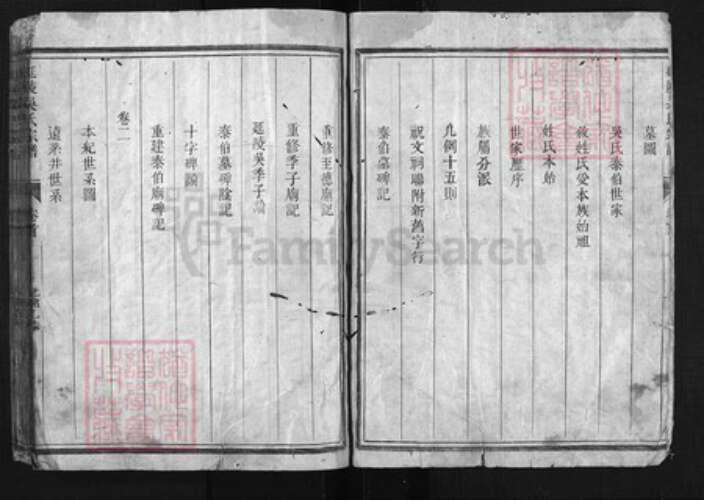 墓圖
吳氏泰伯世家
敘姓氏受本族始祖
姓氏本始
世家歷序
族屬分派
凡例十五則
祝文祠聯附新舊字行
泰伯墓碑記
重修至德廟記
重修季子廟記
延陵吳季子
泰伯墓碑陰記
十字碑
重建泰伯廟碑記
卷二
本紀世系圖
遠系井世系
FamilySearch